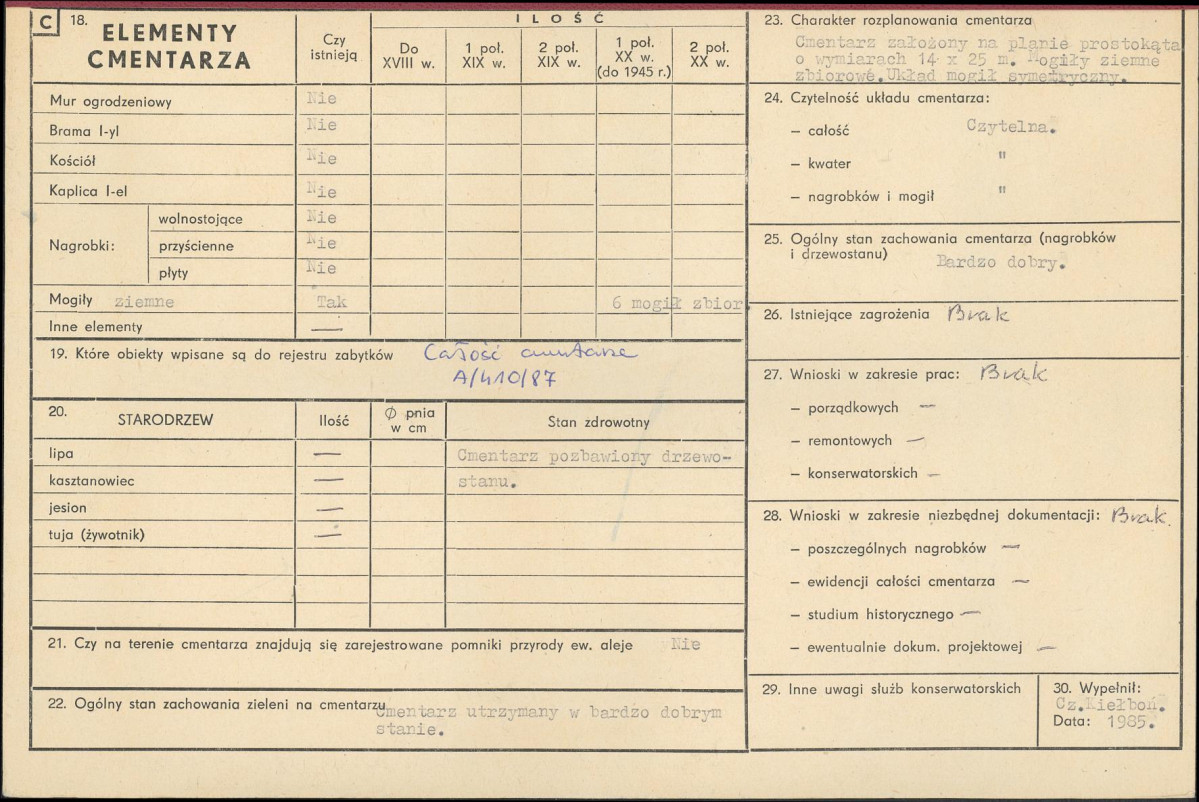 C 18. ELEMENTY
CMENTARZA
Czy
istnieją
ILOŚĆ
Do
XVIII w.
1 poł.
XIX w.
2 poł.
XIX w.
1 poł.
XX w.
(do 1945 r.)
2 poł.
XX w.
Mur ogrodzeniowy Nie
Brama I-yl Nie
Kościół Nie
Kaplica I-el Nie
Nagrobki:
wolnostojące Nie
przyścienne Nie
płyty Nie
Mogiły ziemne Tak 6 mogił zbior
Inne elementy —
19. Które obiekty wpisane są do rejestru zabytków Całość cmentarza
A/410/87
20. STARODRZEW Ilość Ø pnia
w cm
Stan zdrowotny
lipa — Cmentarz pozbawiony drzewo-
kasztanowiec — stanu.
jesion —
tuja (żywotnik) —
21. Czy na terenie cmentarza znajdują się zarejestrowane pomniki przyrody ew. aleje Nie
22. Ogólny stan zachowania zieleni na cmentarzu Cmentarz utrzymany w bardzo dobrym
stanie.
23. Charakter rozplanowania cmentarza
Cmentarz założony na planie prostokąta
o wymiarach 14 x 25 m. Mogiły ziemne
zbiorowe.Układ mogił symetryczny.
24. Czytelność układu cmentarza:
– całość Czytelna.
– kwater "
– nagrobków i mogił "
25. Ogólny stan zachowania cmentarza (nagrobków
i drzewostanu) Bardzo dobry.
26. Istniejące zagrożenia Brak
27. Wnioski w zakresie prac: Brak
– porządkowych —
– remontowych —
– konserwatorskich —
28. Wnioski w zakresie niezbędnej dokumentacji: Brak
– poszczególnych nagrobków —
– ewidencji całości cmentarza —
– studium historycznego —
– ewentualnie dokum. projektowej —
29. Inne uwagi służb konserwatorskich
30. Wypełnił:
Cz.Kiełboń.
Data: 1985.